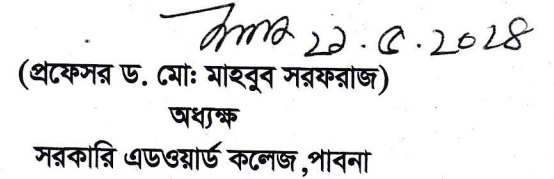 ২১.৫.২০২৪
(প্রফেসর ড. মো: মাহবুব সরফরাজ)
অধ্যক্ষ
সরকারি এডওয়ার্ড কলেজ,পাবনা